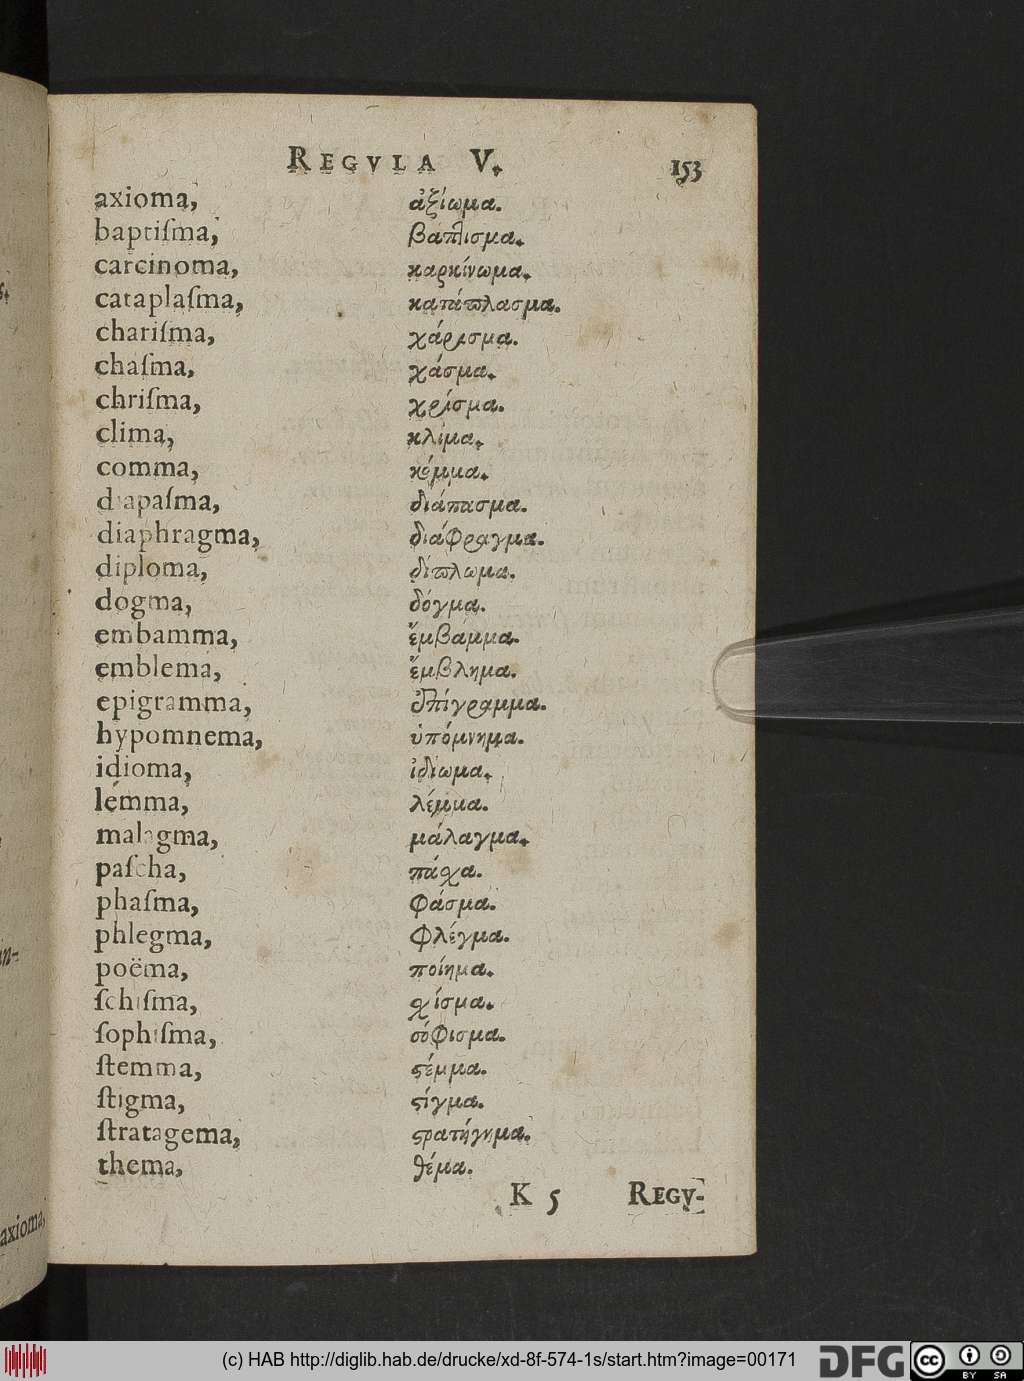 REGVLA V. 153
axioma, ἀξίωμα.
baptiſma, βάπτισμα.
carcinoma, καρκίνωμα.
cataplaſma, κατάπλασμα.
chariſma, χάρισμα.
chaſma, χάσμα.
chriſma, χρίσμα.
clima, κλίμα.
comma, κόμμα.
diapaſma, διάπασμα.
diaphragma, διάφραγμα.
diploma, δίπλωμα.
dogma, δόγμα.
embamma, ἔμβαμμα.
emblema, ἔμβλημα.
epigramma, ἐπίγραμμα.
hypomnema, ὑπόμνημα.
idioma, ἰδίωμα.
lemma, λέμμα.
malagma, μάλαγμα.
paſcha, πάσχα.
phaſma, φάσμα.
phlegma, φλέγμα.
poëma, ποίημα.
ſchiſma, σχίσμα.
ſophiſma, σόφισμα.
ſtemma, ϛέμμα.
ſtigma, ϛίγμα.
ſtratagema, ϛρατήγημα.
thema, θέμα.
K 5 REGV-
axioma,
(c) HAB http://diglib.hab.de/drucke/xd-8f-574-1s/start.htm?image=00171 DFG cc BY SA